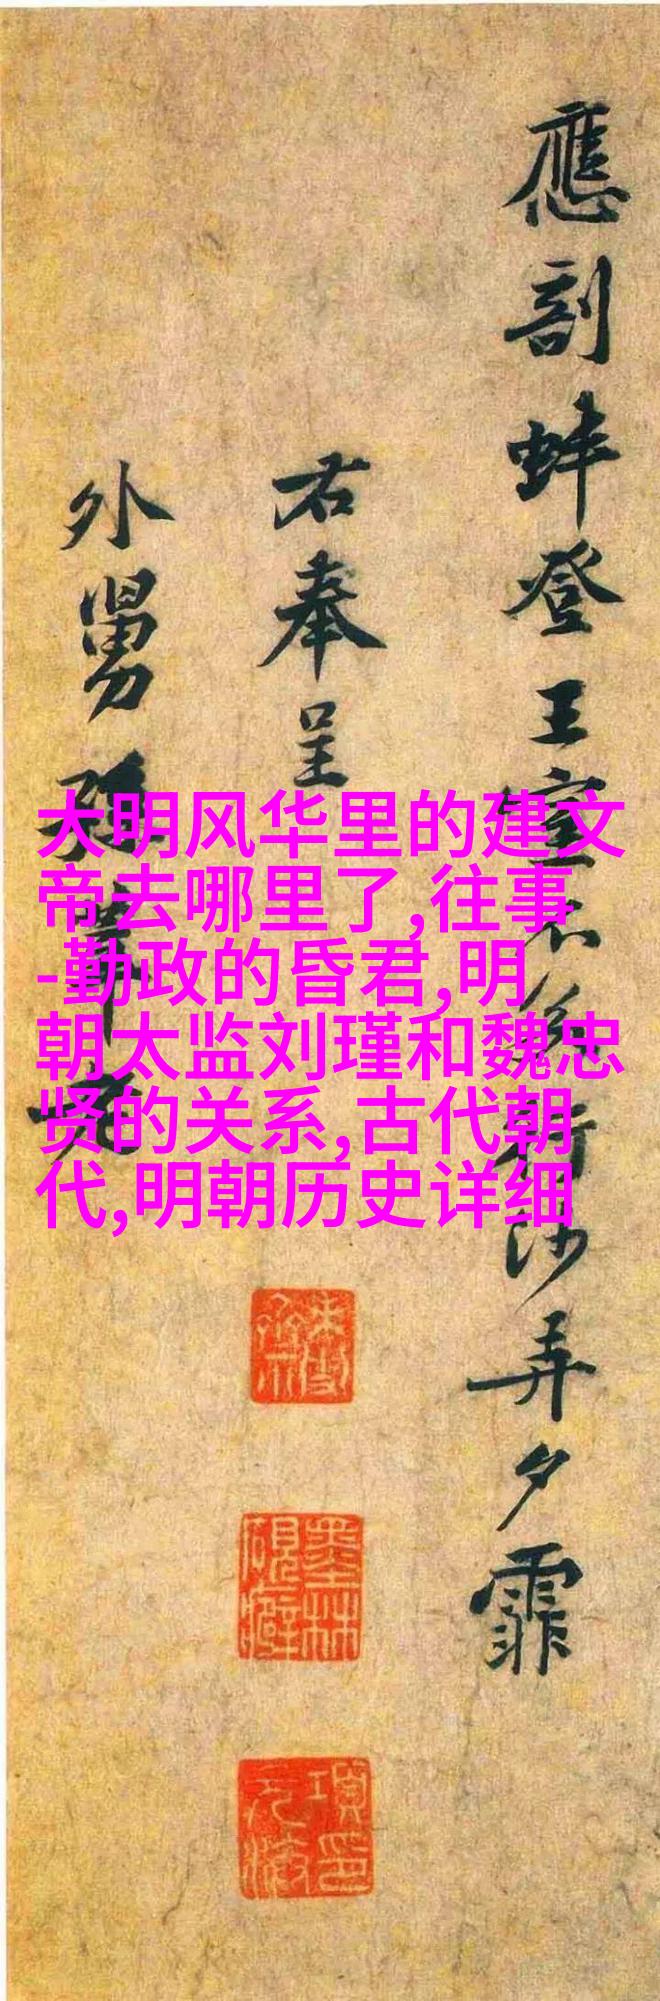 應剖蚌登王室不沙弄夕霏
右奉呈
外舅孫莘老
大明风华里的建文
帝去哪里了,往事
-勤政的昏君,明
朝太监刘瑾和魏忠
贤的关系,古代朝
代,明朝历史详细